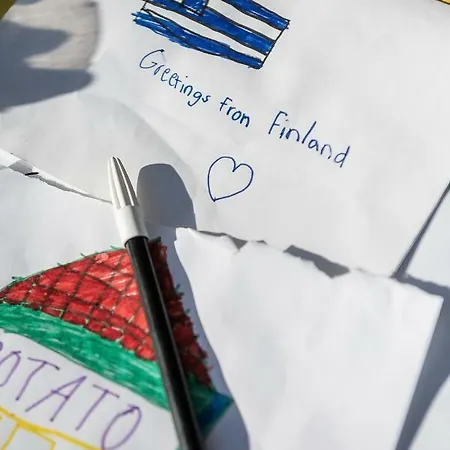 Greetings from Finland
POTATO